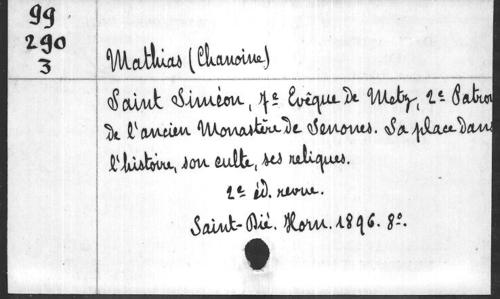 99
290
3
Mathias (Chanoine)
Saint Siméon, 7e Evêque de Metz, 2e Patron
de l'ancien Monastère de Senones. Sa place dans
l'histoire, son culte, ses reliques.
2e éd. revue.
Saint-Dié. Horn. 1896. 8o.